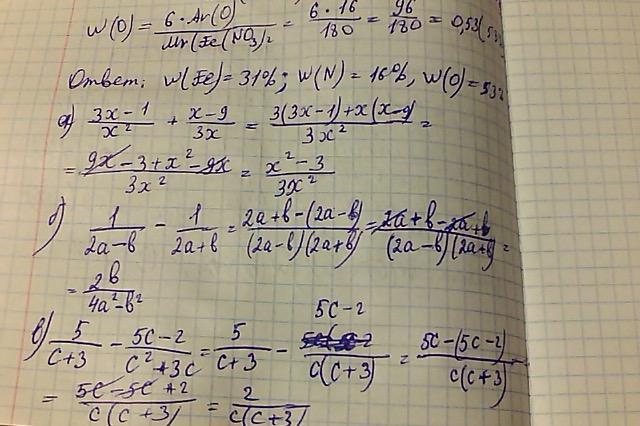 W(O) = 6·Ar(O) / Mr(Fe(NO₃)₂ = 6·16 / 180 = 96 / 180 = 0,53 (53%
Ответ: W(Fe) = 31%; W(N) = 16%, W(O) = 53%
а) 3x-1 / x² + x-9 / 3x = 3(3x-1)+x(x-9) / 3x² =
= 9x-3+x²-9x / 3x² = x²-3 / 3x²
б) 1 / 2a-b - 1 / 2a+b = 2a+b-(2a-b) / (2a-b)(2a+b) = 2a+b-2a+b / (2a-b)(2a+b) =
= 2b / 4a²-b²
в) 5 / c+3 - 5c-2 / c²+3c = 5 / c+3 - 5c-2 / c(c+3) = 5c-(5c-2) / c(c+3)
= 5c-5c+2 / c(c+3) = 2 / c(c+3)